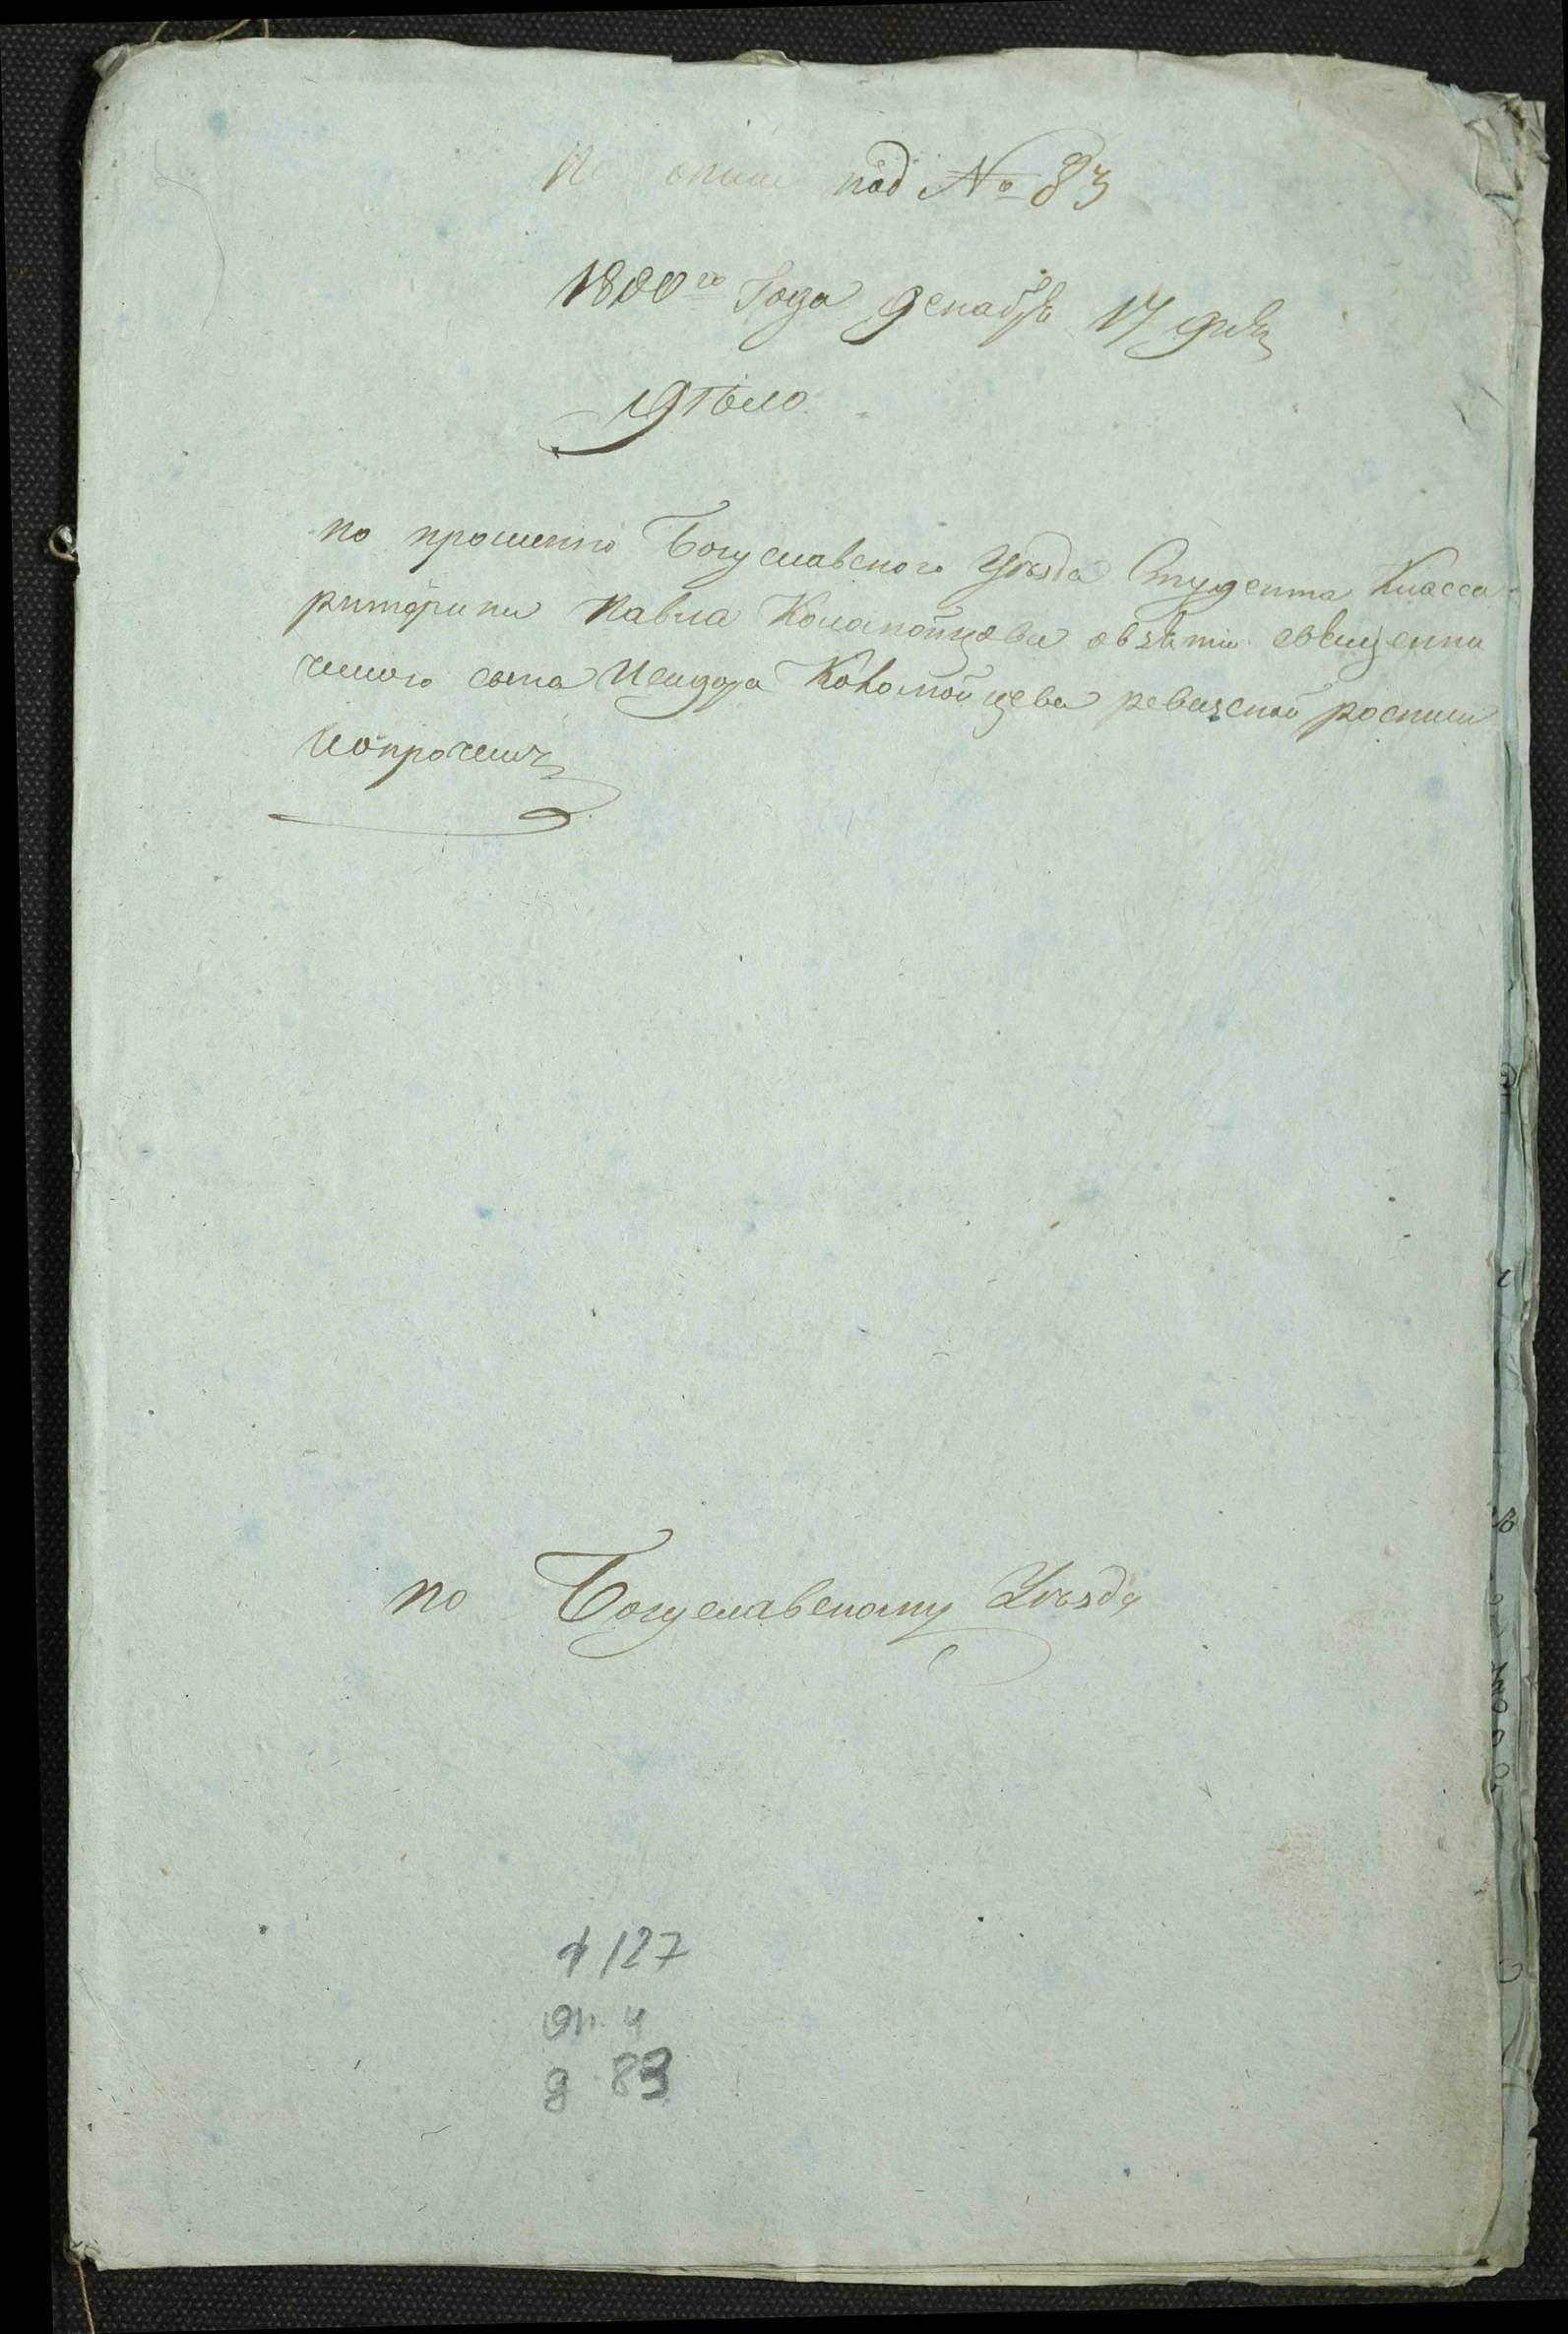 По описи под № 83
1800го Года декабря 17 дня
дѣло
по прошению Богуславского Уѣзда Студента Класса
риторики Павла Коломойцова овзятии священни
ческого сына Исидора Коломойцева ревизской
Ио прочем
по Богуславскому Уѣзду
ф 127
оп. 4
д 83